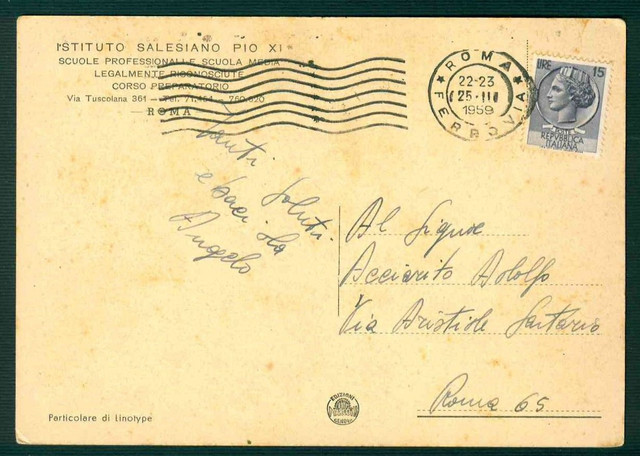 ISTITUTO SALESIANO PIO XI
SCUOLE PROFESSIONALI E SCUOLA MEDIA
LEGALMENTE RICONOSCIUTE
CORSO PREPARATORIO
Via Tuscolana 361 — Tel. 71,464 - 760,620
— ROMA —
★ ROMA ★
22-23
25 · III
1959
FERROVIA
LIRE 15
REPVBBLICA
ITALIANA
Tanti Saluti
e baci da
Angelo
Al Signore
Acciarito Adolfo
Via Aristide Sartorio
Roma 65
Particolare di linotype
EDIZIONI